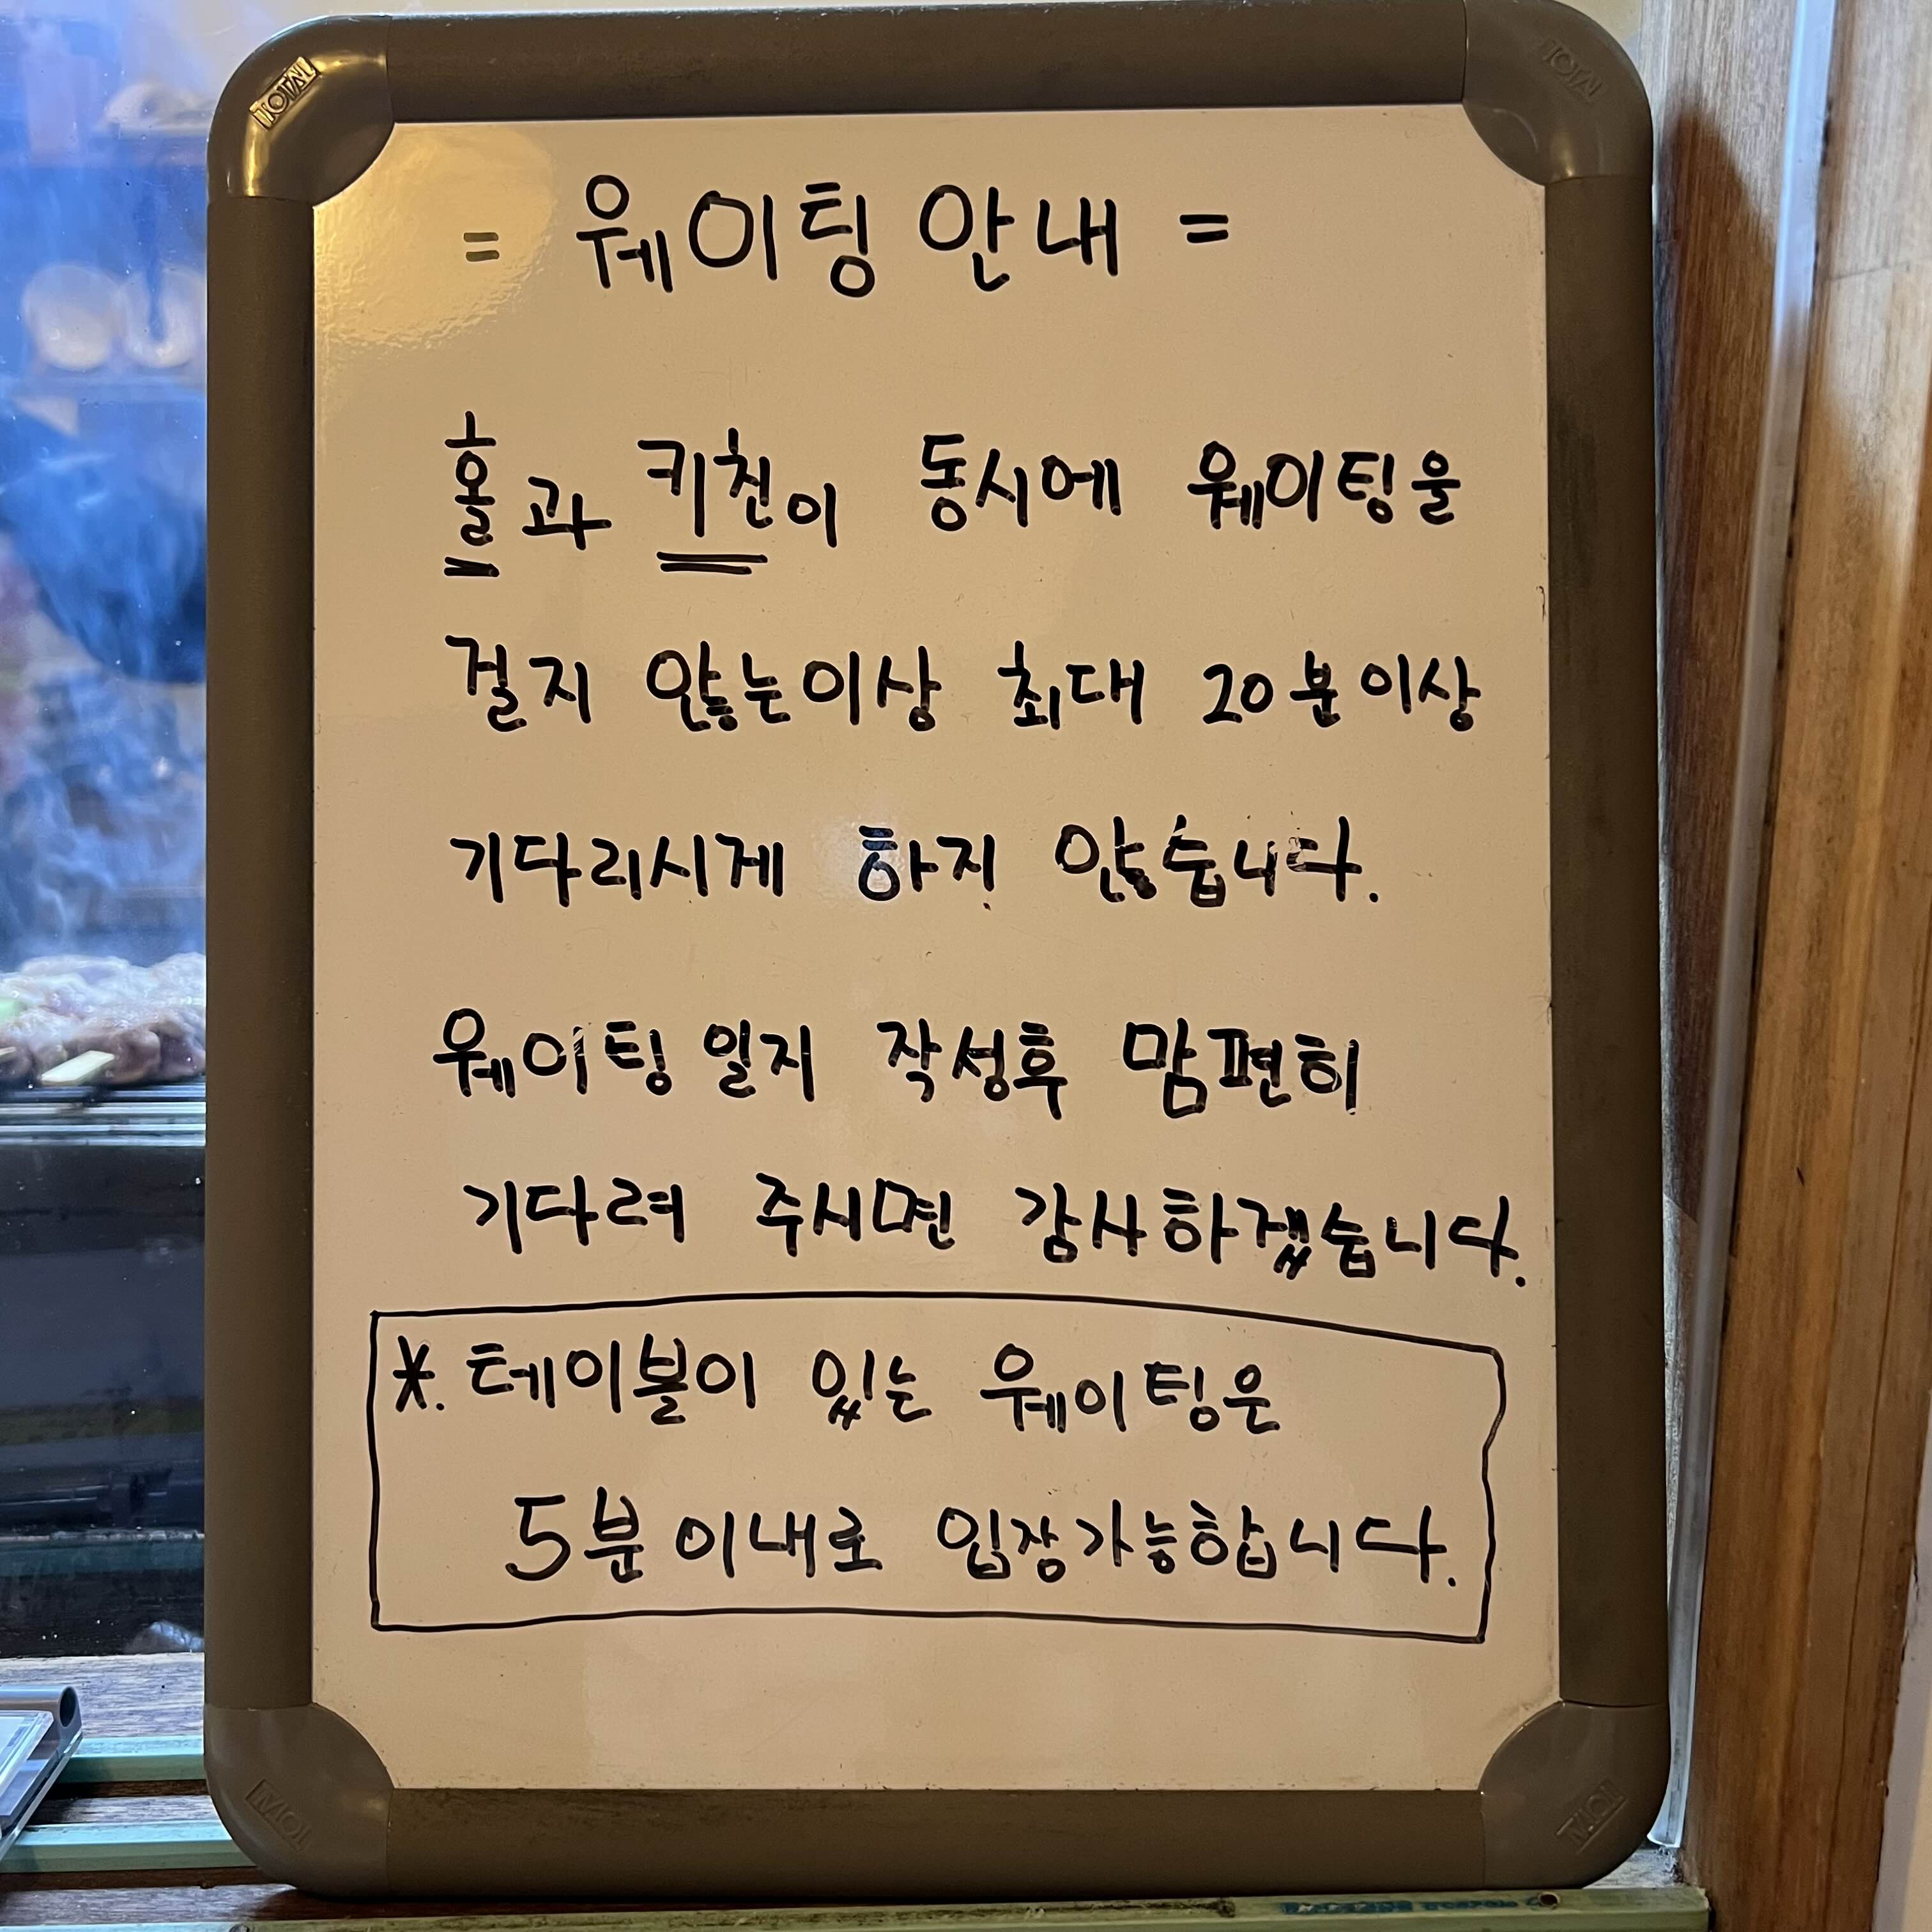 TOTAL
TOTAL
= 웨이팅 안내 =
홀과 키친이 동시에 웨이팅을
걸지 않는이상 최대 20분이상
기다리시게 하지 않습니다.
웨이팅 일지 작성후 맘편히
기다려 주시면 감사하겠습니다.
*. 테이블이 있는 웨이팅은
5분 이내로 입장가능합니다.
TOTAL
TOTAL